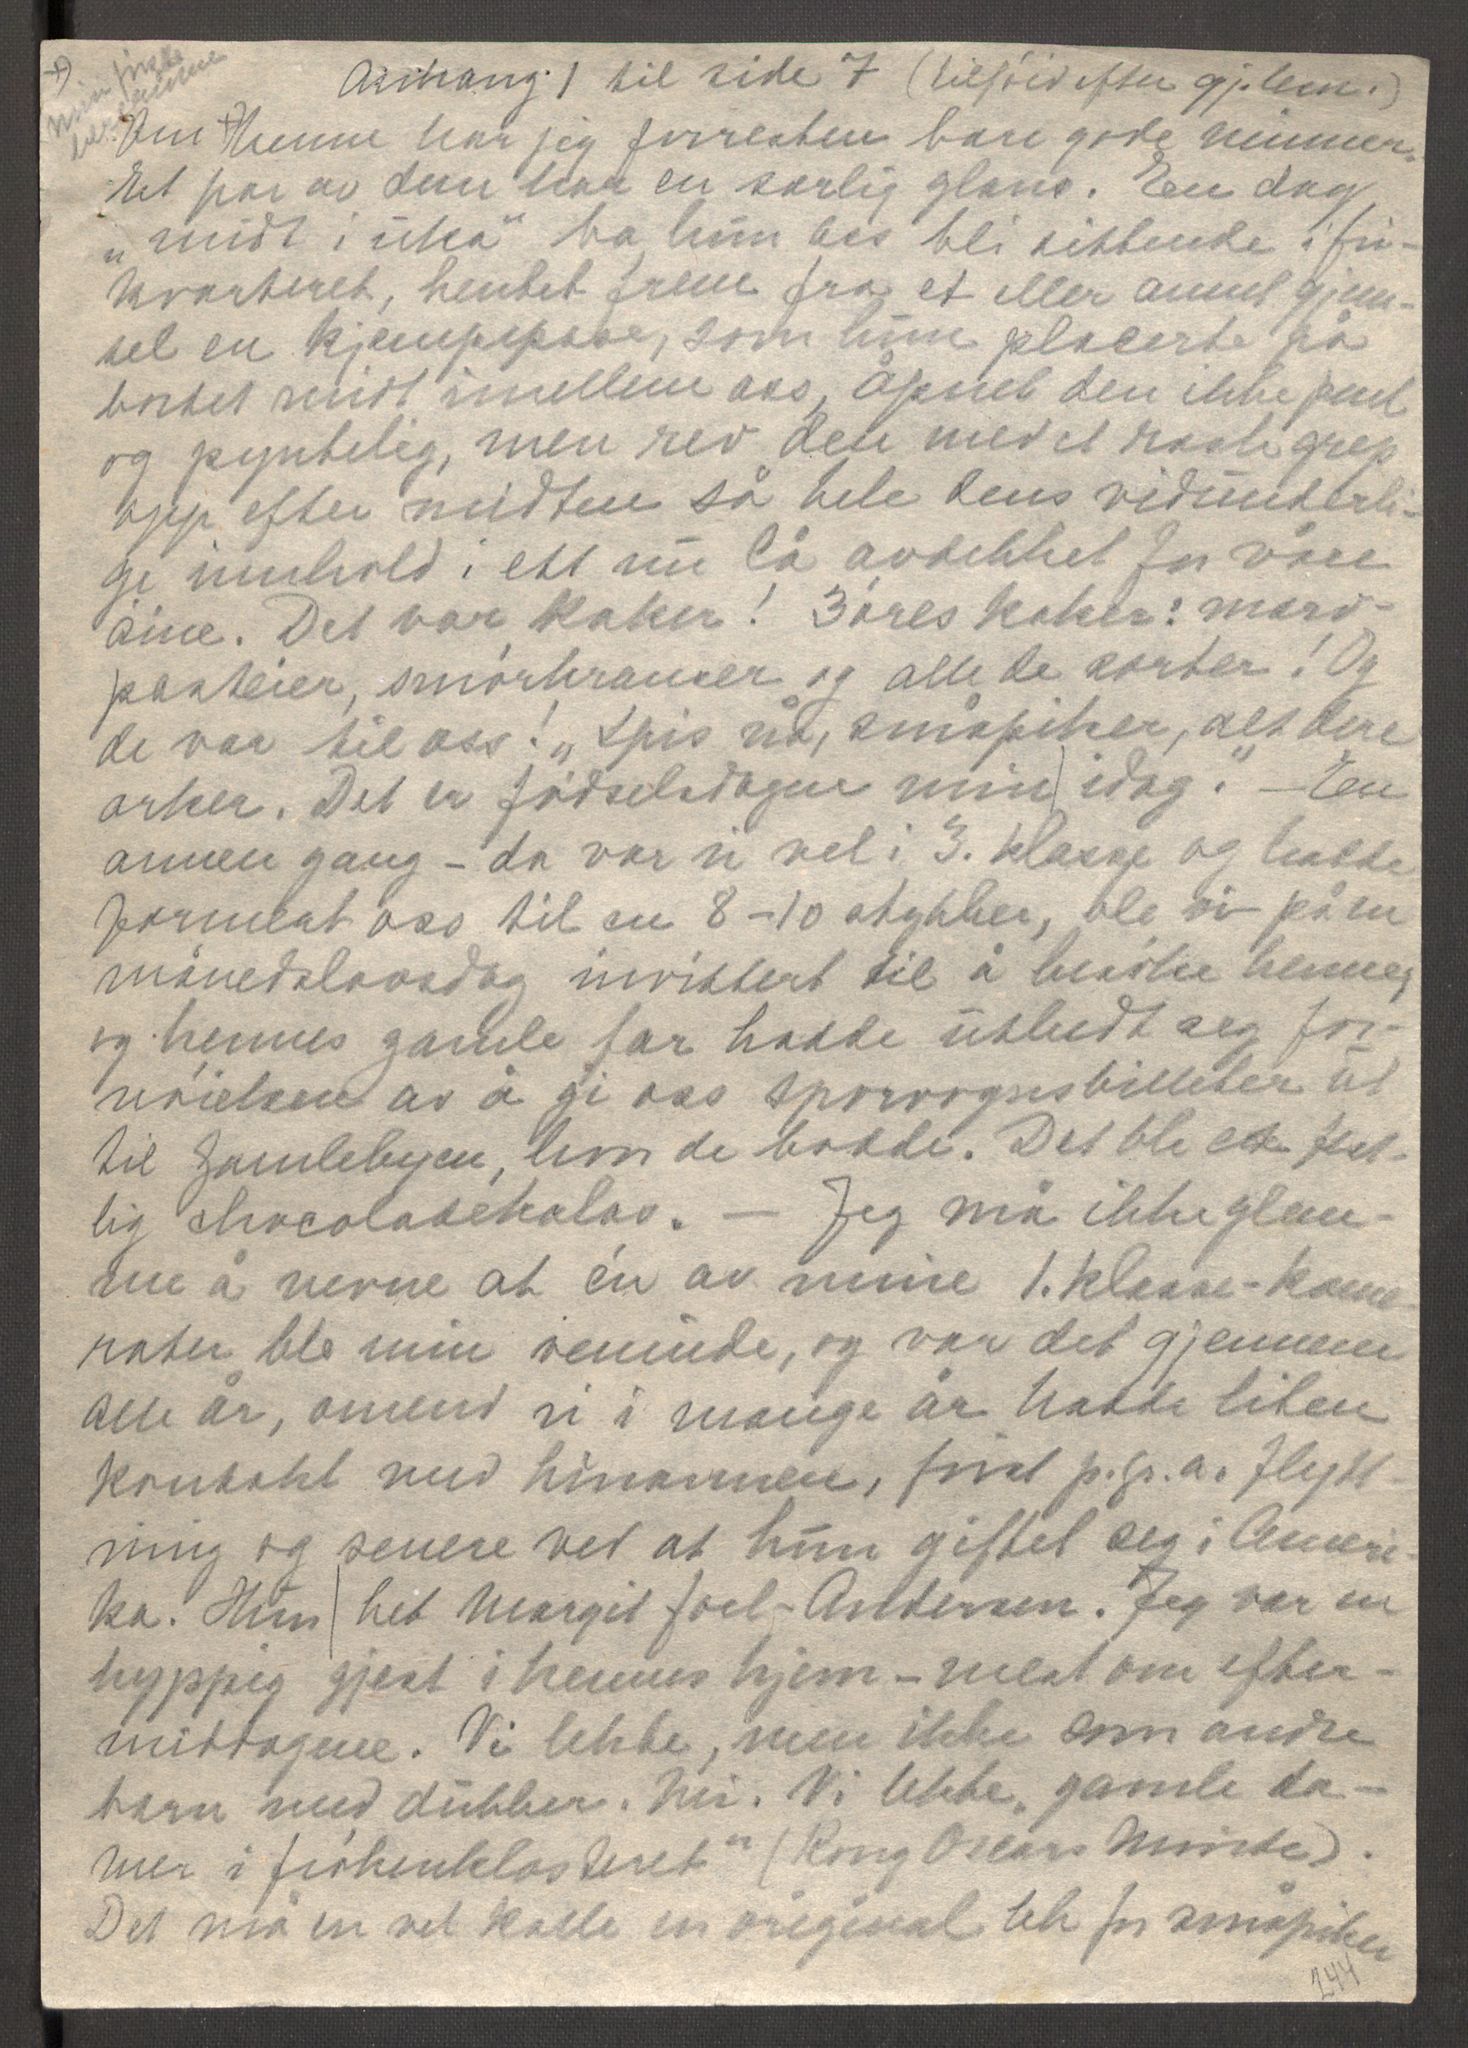 +) min første
lærerinne
Anhang 1 til side 7 (tilföid efter gj.lesn.)
Om +) Henne har jeg forresten bare gode minner.
Et par av dem har en særlig glans. En dag
"midt i uka" ba hun oss bli sittende i fri-
kvarteret, hentet frem fra et eller annet gjem-
sel en kjempepose, som hun placerte på
bordet midt imellem oss, åpnet den ikke pent
og pyntelig, men rev den med et raskt grep
opp efter midten så hele dens vidunderli-
ge innhold i ett nu lå avdekket for våre
öine. Det var kaker! 3öres kaker: mord-
posteier, smörkranser og alle de sorter! Og
de var til oss! "Spis nå, småpiker, alt dere
orker. Det er födselsdagen min idag." – En
annen gang – da var vi vel i 3. klasse og hadde
formert oss til en 8–10 stykker, ble vi på en
månedslovsdag invitert til å besöke henne,
og hennes gamle far hadde utbedt seg for-
nöielsen av å gi oss sporvognsbilletter ut
til Gamlebyen, hvor de bodde. Det ble et fest-
lig chocoladekalas. — Jeg må ikke glem-
me å nevne at én av mine 1. klasse-kame-
rater ble min veninde, og var det gjennem
alle år, omend vi i mange år hadde liten
kontakt med hinannen, först p.gr.a. flytt-
ning og senere ved at hun giftet seg i Ameri-
ka. Hun het Margit Joel-Andersen. Jeg var en
hyppig gjest i hennes hjem – mest om efter-
middagene. Vi lekte, men ikke som andre
barn med dukker. Nei. Vi lekte "gamle da-
mer i frökenklosteret" (Kong Oscars Minde).
Det må en vel kalle en original lek for småpiker
244